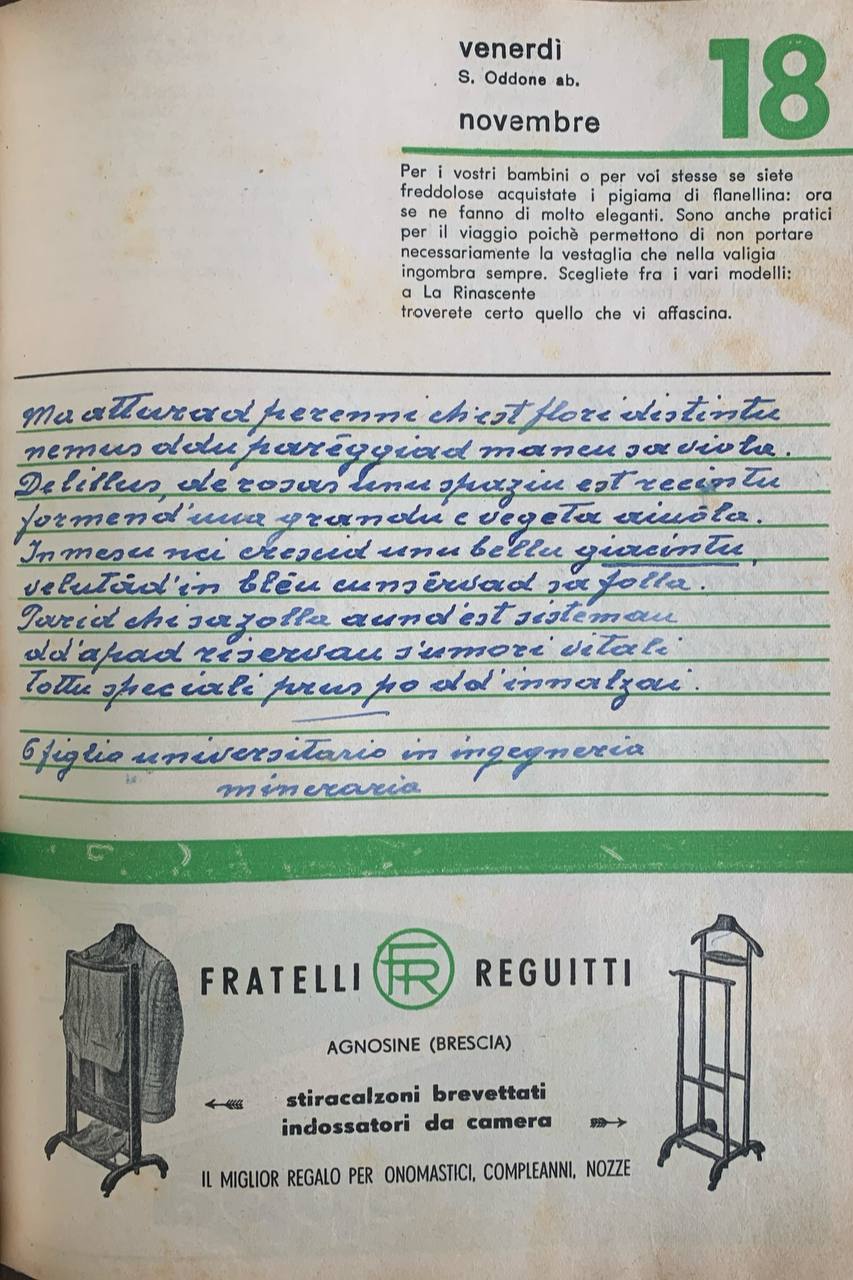 venerdì
S. Oddone ab.
novembre
18
Per i vostri bambini o per voi stesse se siete
freddolose acquistate i pigiama di flanellina: ora
se ne fanno di molto eleganti. Sono anche pratici
per il viaggio poichè permettono di non portare
necessariamente la vestaglia che nella valigia
ingombra sempre. Scegliete fra i vari modelli:
a La Rinascente
troverete certo quello che vi affascina.
Ma atturad perenni ch'est flori distintu
nemus ddu parēggiad mancu sa viola.
De lillus, de rosas unu spaziu est recintu
formend'una grandu e vegeta aiuōla.
In mesu nci crescid unu bellu giacintu,
velutād'in blēu cunsērvad sa folla.
Parid chi sa zolla aund'est sistemau
dd'apad riservau s'umori vitali
tottu speciali prus po dd'innalzai.
6 figlia universitario in ingegneria
mineraria
FRATELLI FR REGUITTI
AGNOSINE (BRESCIA)
stiracalzoni brevettati
indossatori da camera
IL MIGLIOR REGALO PER ONOMASTICI, COMPLEANNI, NOZZE